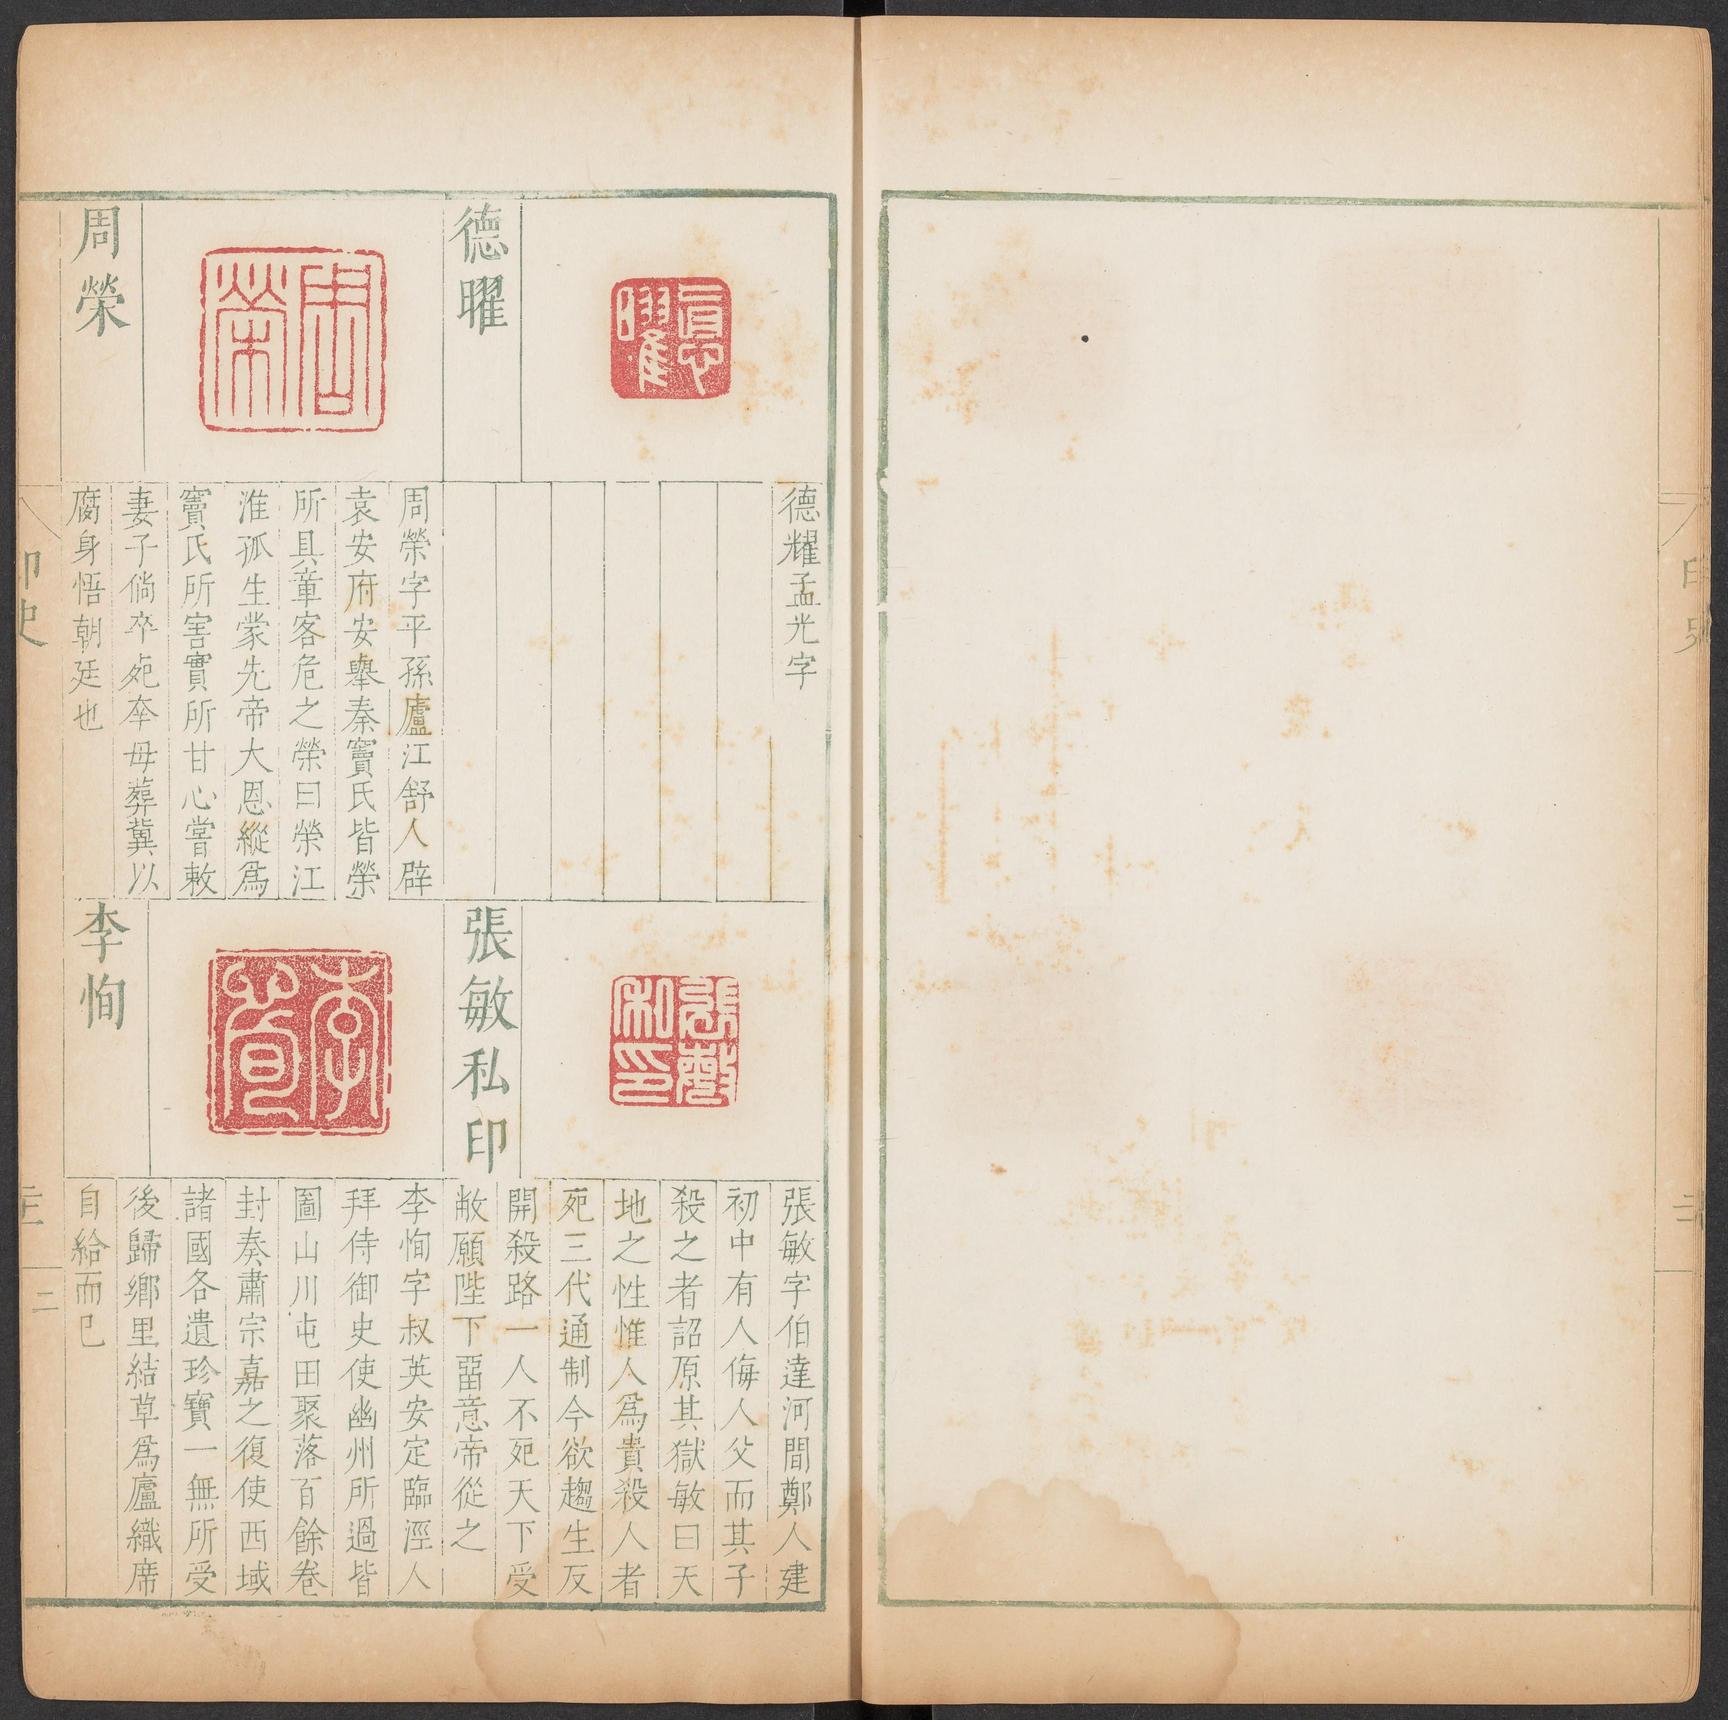 德曜
德耀孟光字
周榮
周榮字平孫廬江舒人辟
袁安府安舉奏竇氏皆榮
所具章客危之榮曰榮江
淮孤生蒙先帝大恩縱爲
竇氏所害實所甘心嘗敕
妻子倘卒死牽母葬冀以
腐身悟朝廷也
張敏私印
張敏字伯達河間鄭人建
初中有人侮人父而其子
殺之者詔原其獄敏曰天
地之性惟人爲貴殺人者
死三代通制今欲趨生反
開殺路一人不死天下受
敝願陛下留意帝從之
李恂
李恂字叔英安定臨涇人
拜侍御史使幽州所過皆
圖山川屯田聚落百餘卷
封奏肅宗嘉之復使西域
諸國各遺珍寶一無所受
後歸鄉里結草爲廬織席
自給而已
印史